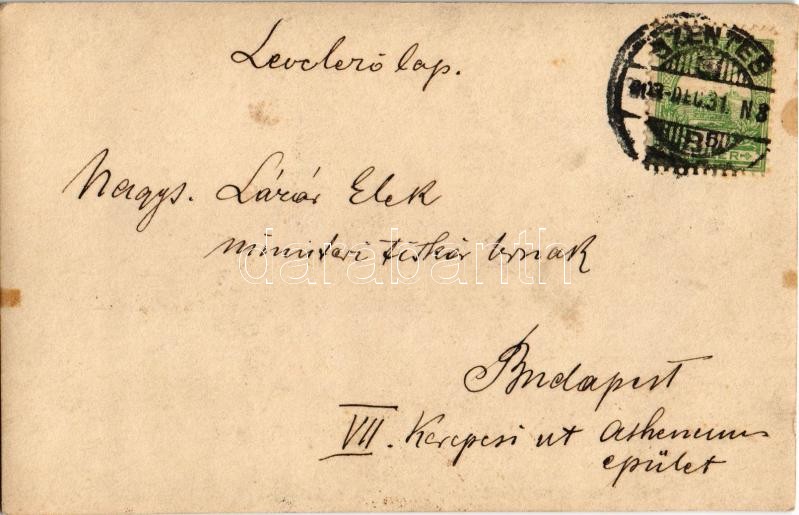 Levelező lap.
SZENTES
903 DEC. 31 N 8
Nagys. Lázár Elek
ministeri titkár úrnak
darabanth
Budapest
VII. Kerepesi ut Atheneum
épület